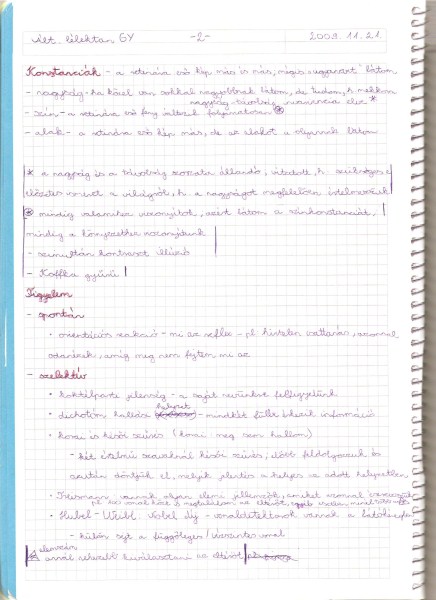 Ált. lélektan GY -2- 2009. 11. 21.
Konstanciák - a retinára eső kép más és más, mégis ugyanazt látom
- nagyság - ha közel van sokkal nagyobbnak látom, de tudom, h mekkora
nagyság-távolság invariancia elve *
- szín - a retinára eső fény változik folyamatosan
- alak - a retinára eső kép más, de az alakot olyannak látom
* a nagyság és a távolság szorzata állandó, vitatott, h szükséges e
előzetes ismeret a világról, h a nagyságot megfelelően értelmezzük
mindig valamihez viszonyítok, ezért látom a színkonstanciát,
mindig a környezethez viszonyítunk
- szimultán kontraszt illúzió
- Koffka gyűrű
Figyelem
- spontán
• orientációs reakció - mi az reflex - pl. hirtelen zaj, azonnal
odanézek, amíg meg nem fejtem mi az
- szelektív
• koktélparti jelenség - a saját nevünkre felfigyelünk
• dichotikus hallási helyzet - mindkét fülbe érkezik információ
• korai és késői szűrés (korai meg sem hallom)
- két értelmű szavaknál késői szűrés, előbb feldolgozzuk és
azután döntjük el, melyik jelentés a helyes az adott helyzetben
• Treisman, vannak olyan elemi jellemzők, amiket azonnal
• Hubel - Wiesel Nobel díj - vonaldetektorok vannak a látókéregben
- külön sejt a függőleges / vízszintes vonal
annál nehezebb kiválasztani az eltérőt